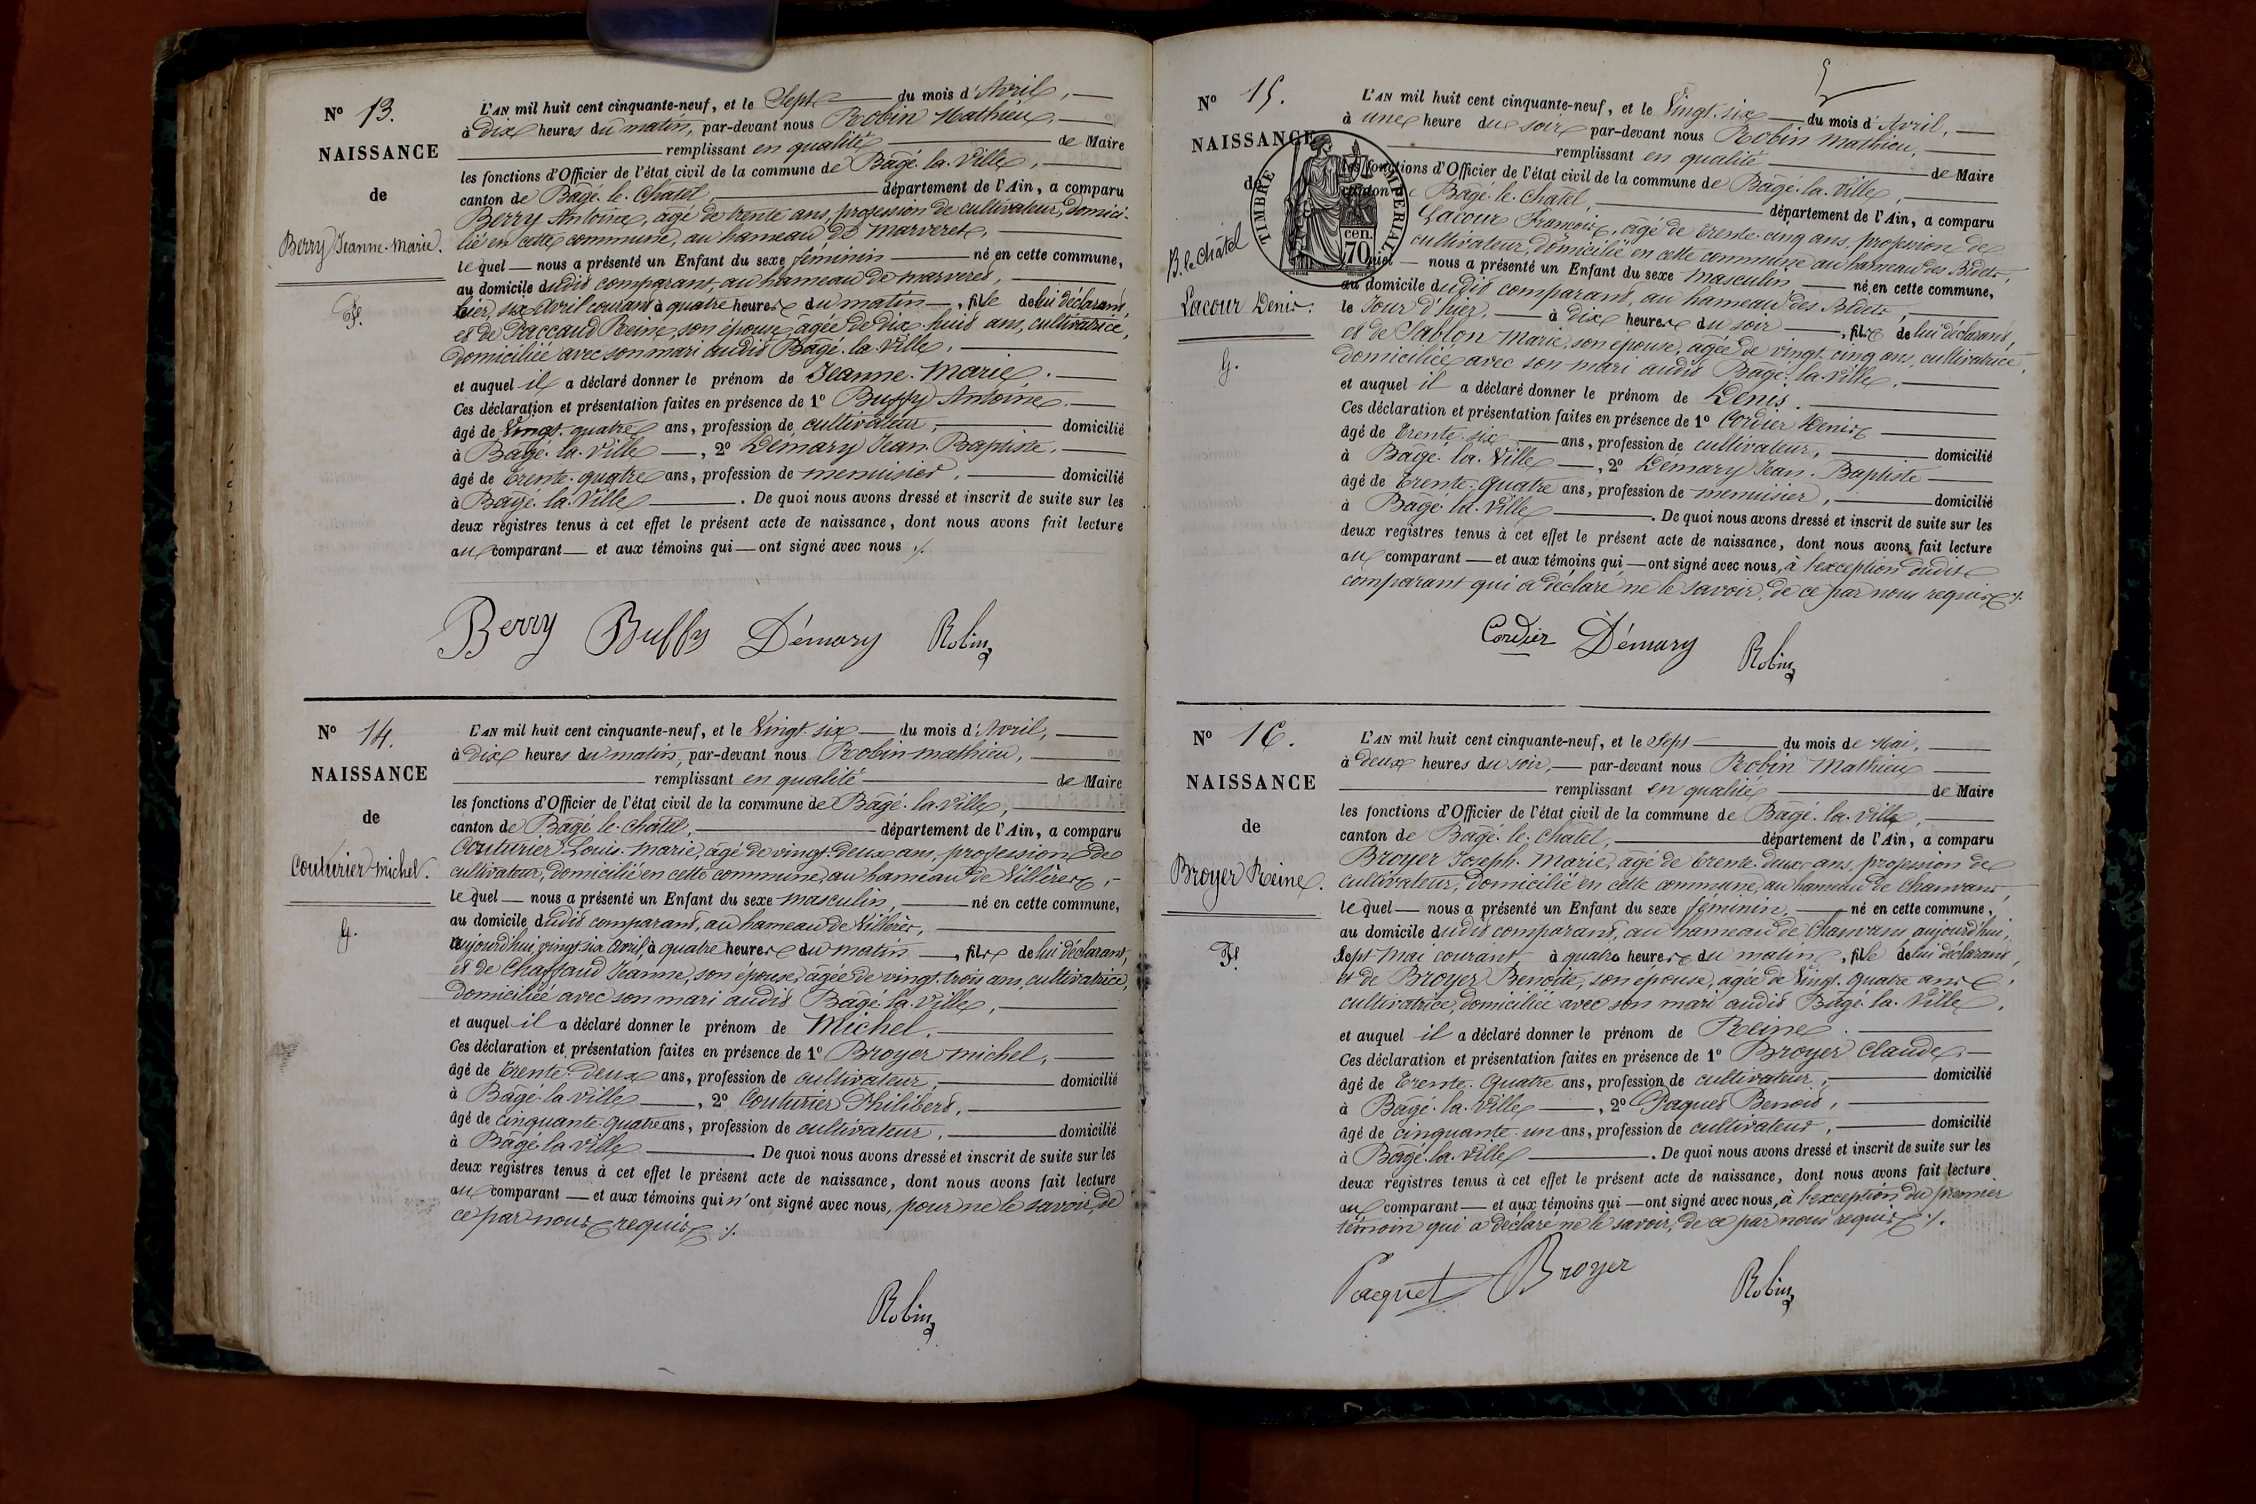 N° 13.
NAISSANCE
de
Berry Jeanne-Marie.
F.
L'AN mil huit cent cinquante-neuf, et le Sept du mois d'Avril,
à Dix heures du matin, par-devant nous Robin Mathieu,
remplissant en qualité de Maire
les fonctions d'Officier de l'état civil de la commune de Bâgé-la-Ville,
canton de Bâgé-le-Chatel, département de l'Ain, a comparu
Berry Antoine, âgé de trente ans, profession de cultivateur, domici-
lié en cette commune, au hameau de Marveret,
lequel nous a présenté un Enfant du sexe féminin né en cette commune,
au domicile dudit comparant, au hameau de marveret,
hier, six avril courant à quatre heures du matin, fille de lui déclarant,
et de Raccaud Reine, son épouse, âgée de dix-huit ans, cultivatrice,
domiciliée avec son mari audit Bâgé-la-Ville,
et auquel il a déclaré donner le prénom de Jeanne-Marie.
Ces déclaration et présentation faites en présence de 1° Buffy Antoine
âgé de Vingt-quatre ans, profession de cultivateur, domicilié
à Bâgé-la-Ville, 2° Démary Jean-Baptiste,
âgé de trente-quatre ans, profession de menuisier, domicilié
à Bâgé-la-Ville. De quoi nous avons dressé et inscrit de suite sur les
deux registres tenus à cet effet le présent acte de naissance, dont nous avons fait lecture
au comparant et aux témoins qui ont signé avec nous ./.
Berry Buffy Démary Robin
N° 14.
NAISSANCE
de
Couturier Michel.
G.
L'AN mil huit cent cinquante-neuf, et le Vingt-six du mois d'Avril,
à Dix heures du matin, par-devant nous Robin mathieu,
remplissant en qualité de Maire
les fonctions d'Officier de l'état civil de la commune de Bâgé-la-Ville,
canton de Bâgé-le-Châtel, département de l'Ain, a comparu
Couturier Louis-Marie, âgé de vingt-deux ans, profession de
cultivateur, domicilié en cette commune, au hameau de Villières,
lequel nous a présenté un Enfant du sexe masculin, né en cette commune,
au domicile dudit comparant, au hameau de Villières,
aujourd'hui, vingt-six avril, à quatre heures du matin, fils de lui déclarant,
et de Chaffaud Jeanne, son épouse, âgée de vingt-trois ans, cultivatrice,
domiciliée avec son mari audit Bâgé-la-Ville,
et auquel il a déclaré donner le prénom de Michel.
Ces déclaration et présentation faites en présence de 1° Broyer michel,
âgé de trente-deux ans, profession de cultivateur, domicilié
à Bâgé-la-ville, 2° Couturier Philibert,
âgé de cinquante-quatre ans, profession de cultivateur, domicilié
à Bâgé-la-ville. De quoi nous avons dressé et inscrit de suite sur les
deux registres tenus à cet effet le présent acte de naissance, dont nous avons fait lecture
au comparant et aux témoins qui n'ont signé avec nous, pour ne le savoir, de
ce par nous requis ./.
Robin
5
N° 15.
NAISSANCE
de
B. le Châtel
Lacour Denis.
G.
TIMBRE IMPERIAL
70 cen.
L'AN mil huit cent cinquante-neuf, et le Vingt-six du mois d'Avril,
à une heure du soir par-devant nous Robin Mathieu,
remplissant en qualité de Maire
les fonctions d'Officier de l'état civil de la commune de Bâgé-la-Ville,
canton de Bâgé-le-châtel, département de l'Ain, a comparu
Lacour François, âgé de trente-cinq ans, profession de
cultivateur, domicilié en cette commune au hameau des Bidets,
lequel nous a présenté un Enfant du sexe masculin, né en cette commune,
au domicile dudit comparant, au hameau des Bidets,
le Jour d'hier, à dix heures du soir, fils de lui déclarant,
et de Sablon Marie, son épouse, âgée de vingt-cinq ans, cultivatrice,
domiciliée avec son mari audit Bâgé-la-Ville,
et auquel il a déclaré donner le prénom de Denis.
Ces déclaration et présentation faites en présence de 1° Cordier Denis
âgé de trente-six ans, profession de cultivateur, domicilié
à Bâgé-la-Ville, 2° Démary Jean-Baptiste
âgé de trente-quatre ans, profession de menuisier, domicilié
à Bâgé-la-Ville. De quoi nous avons dressé et inscrit de suite sur les
deux registres tenus à cet effet le présent acte de naissance, dont nous avons fait lecture
au comparant et aux témoins qui ont signé avec nous, à l'exception dudit
comparant qui a déclaré ne le savoir, de ce par nous requis ./.
Cordier Démary Robin
N° 16.
NAISSANCE
de
Broyer Reine.
F.
L'AN mil huit cent cinquante-neuf, et le Sept du mois de Mai,
à deux heures du soir, par-devant nous Robin Mathieu
remplissant en qualité de Maire
les fonctions d'Officier de l'état civil de la commune de Bâgé-la-Ville,
canton de Bâgé-le-Châtel, département de l'Ain, a comparu
Broyer Joseph-Marie, âgé de trente-deux ans, profession de
cultivateur, domicilié en cette commune, au hameau de Chanvans,
lequel nous a présenté un Enfant du sexe féminin, né en cette commune,
au domicile dudit comparant, au hameau de Chanvans aujourd'hui,
Sept Mai courant, à quatre heures du matin, fille de lui déclarant,
et de Broyer Benoite, son épouse, âgée de Vingt-quatre ans,
cultivatrice, domiciliée avec son mari audit Bâgé-la-Ville,
et auquel il a déclaré donner le prénom de Reine.
Ces déclaration et présentation faites en présence de 1° Broyer Claude,
âgé de trente-quatre ans, profession de cultivateur, domicilié
à Bâgé-la-Ville, 2° Paquet Benoit,
âgé de cinquante-un ans, profession de cultivateur, domicilié
à Bâgé-la-ville. De quoi nous avons dressé et inscrit de suite sur les
deux registres tenus à cet effet le présent acte de naissance, dont nous avons fait lecture
au comparant et aux témoins qui ont signé avec nous, à l'exception du premier
témoin qui a déclaré ne le savoir, de ce par nous requis ./.
Paquet Broyer Robin